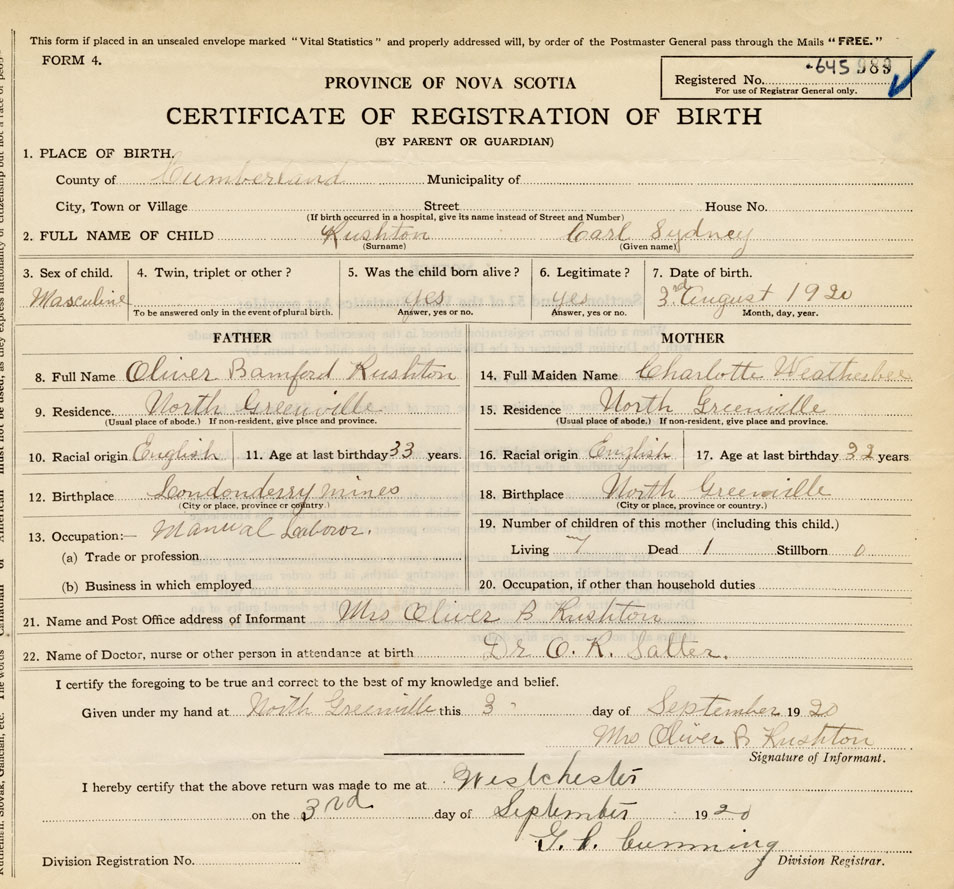 This form if placed in an unsealed envelope marked "Vital Statistics" and properly addressed will, by order of the Postmaster General pass through the Mails "FREE."
FORM 4.
PROVINCE OF NOVA SCOTIA
Registered No. 645 989
For use of Registrar General only.
CERTIFICATE OF REGISTRATION OF BIRTH
(BY PARENT OR GUARDIAN)
1. PLACE OF BIRTH.
County of Cumberland Municipality of
City, Town or Village Street House No.
(If birth occurred in a hospital, give its name instead of Street and Number)
2. FULL NAME OF CHILD Rushton Carl Sydney
(Surname) (Given name)
3. Sex of child. 4. Twin, triplet or other? 5. Was the child born alive? 6. Legitimate? 7. Date of birth.
Masculine yes yes 3rd August 1920
To be answered only in the event of plural birth. Answer, yes or no. Answer, yes or no. Month, day, year.
FATHER MOTHER
8. Full Name Oliver Bamford Rushton 14. Full Maiden Name Charlotte Weatherbee
9. Residence. North Greenville 15. Residence North Greenville
(Usual place of abode.) If non-resident, give place and province. (Usual place of abode.) If non-resident, give place and province.
10. Racial origin English 11. Age at last birthday 33 years. 16. Racial origin English 17. Age at last birthday 32 years
12. Birthplace Londonderry mines 18. Birthplace North Greenville
(City or place, province or country.) (City or place, province or country.)
13. Occupation:— Manual Labour. 19. Number of children of this mother (including this child.)
(a) Trade or profession. Living 7 Dead 1 Stillborn 0
(b) Business in which employed 20. Occupation, if other than household duties
21. Name and Post Office address of Informant Mrs Oliver B Rushton
22. Name of Doctor, nurse or other person in attendance at birth Dr O. R. Salter.
I certify the foregoing to be true and correct to the best of my knowledge and belief.
Given under my hand at North Greenville this 3 day of September 1920
Mrs Oliver B Rushton
Signature of Informant.
I hereby certify that the above return was made to me at Westchester
on the 3rd day of September 1920
Cumming
Division Registration No. Division Registrar.